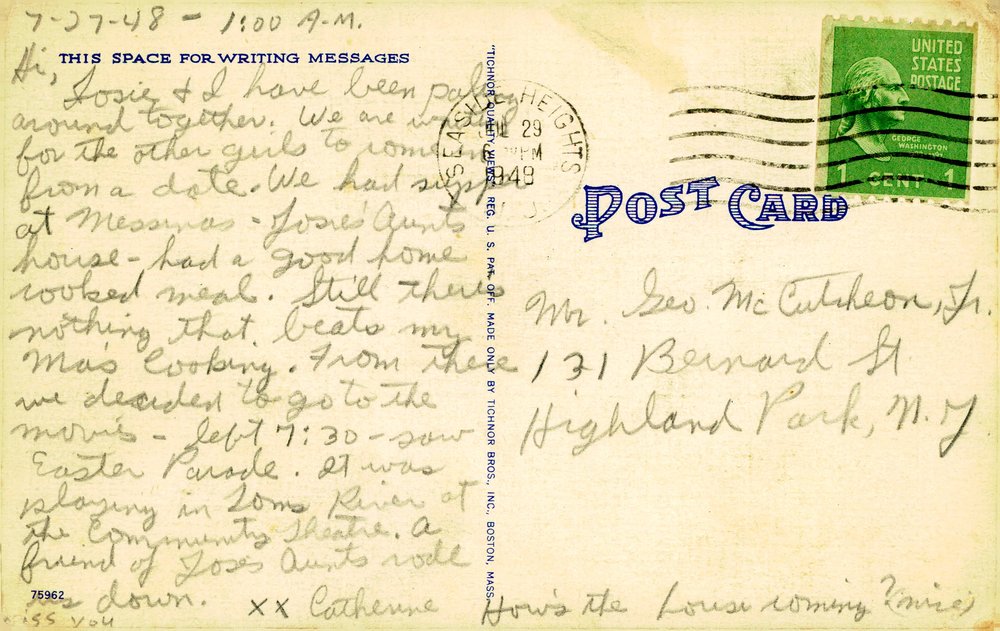 7-27-48 - 1:00 A.M.
THIS SPACE FOR WRITING MESSAGES
Hi,
Josie & I have been paling
around together. We are waiting
for the other girls to come in
from a date. We had supper
at Messinas - Josie's Aunts
house - had a good home
cooked meal. Still theres
nothing that beats my
Ma's Cooking. From there
we decided to go to the
movies - left 7:30 - saw
Easter Parade. It was
playing in Toms River at
the Community Theatre. A
friend of Joses Aunts rode
us down.
XX Catherine
Miss you
75962
"TICHNOR QUALITY VIEWS" REG. U. S. PAT. OFF. MADE ONLY BY TICHNOR BROS., INC., BOSTON, MASS.
SEASIDE HEIGHTS
JUL 29
PM
1948
N.J.
UNITED
STATES
POSTAGE
GEORGE
WASHINGTON
1 CENT 1
POST CARD
Mr. Geo. McCutcheon, Jr.
131 Bernard St
Highland Park, N.J
How's the house coming? (nice)